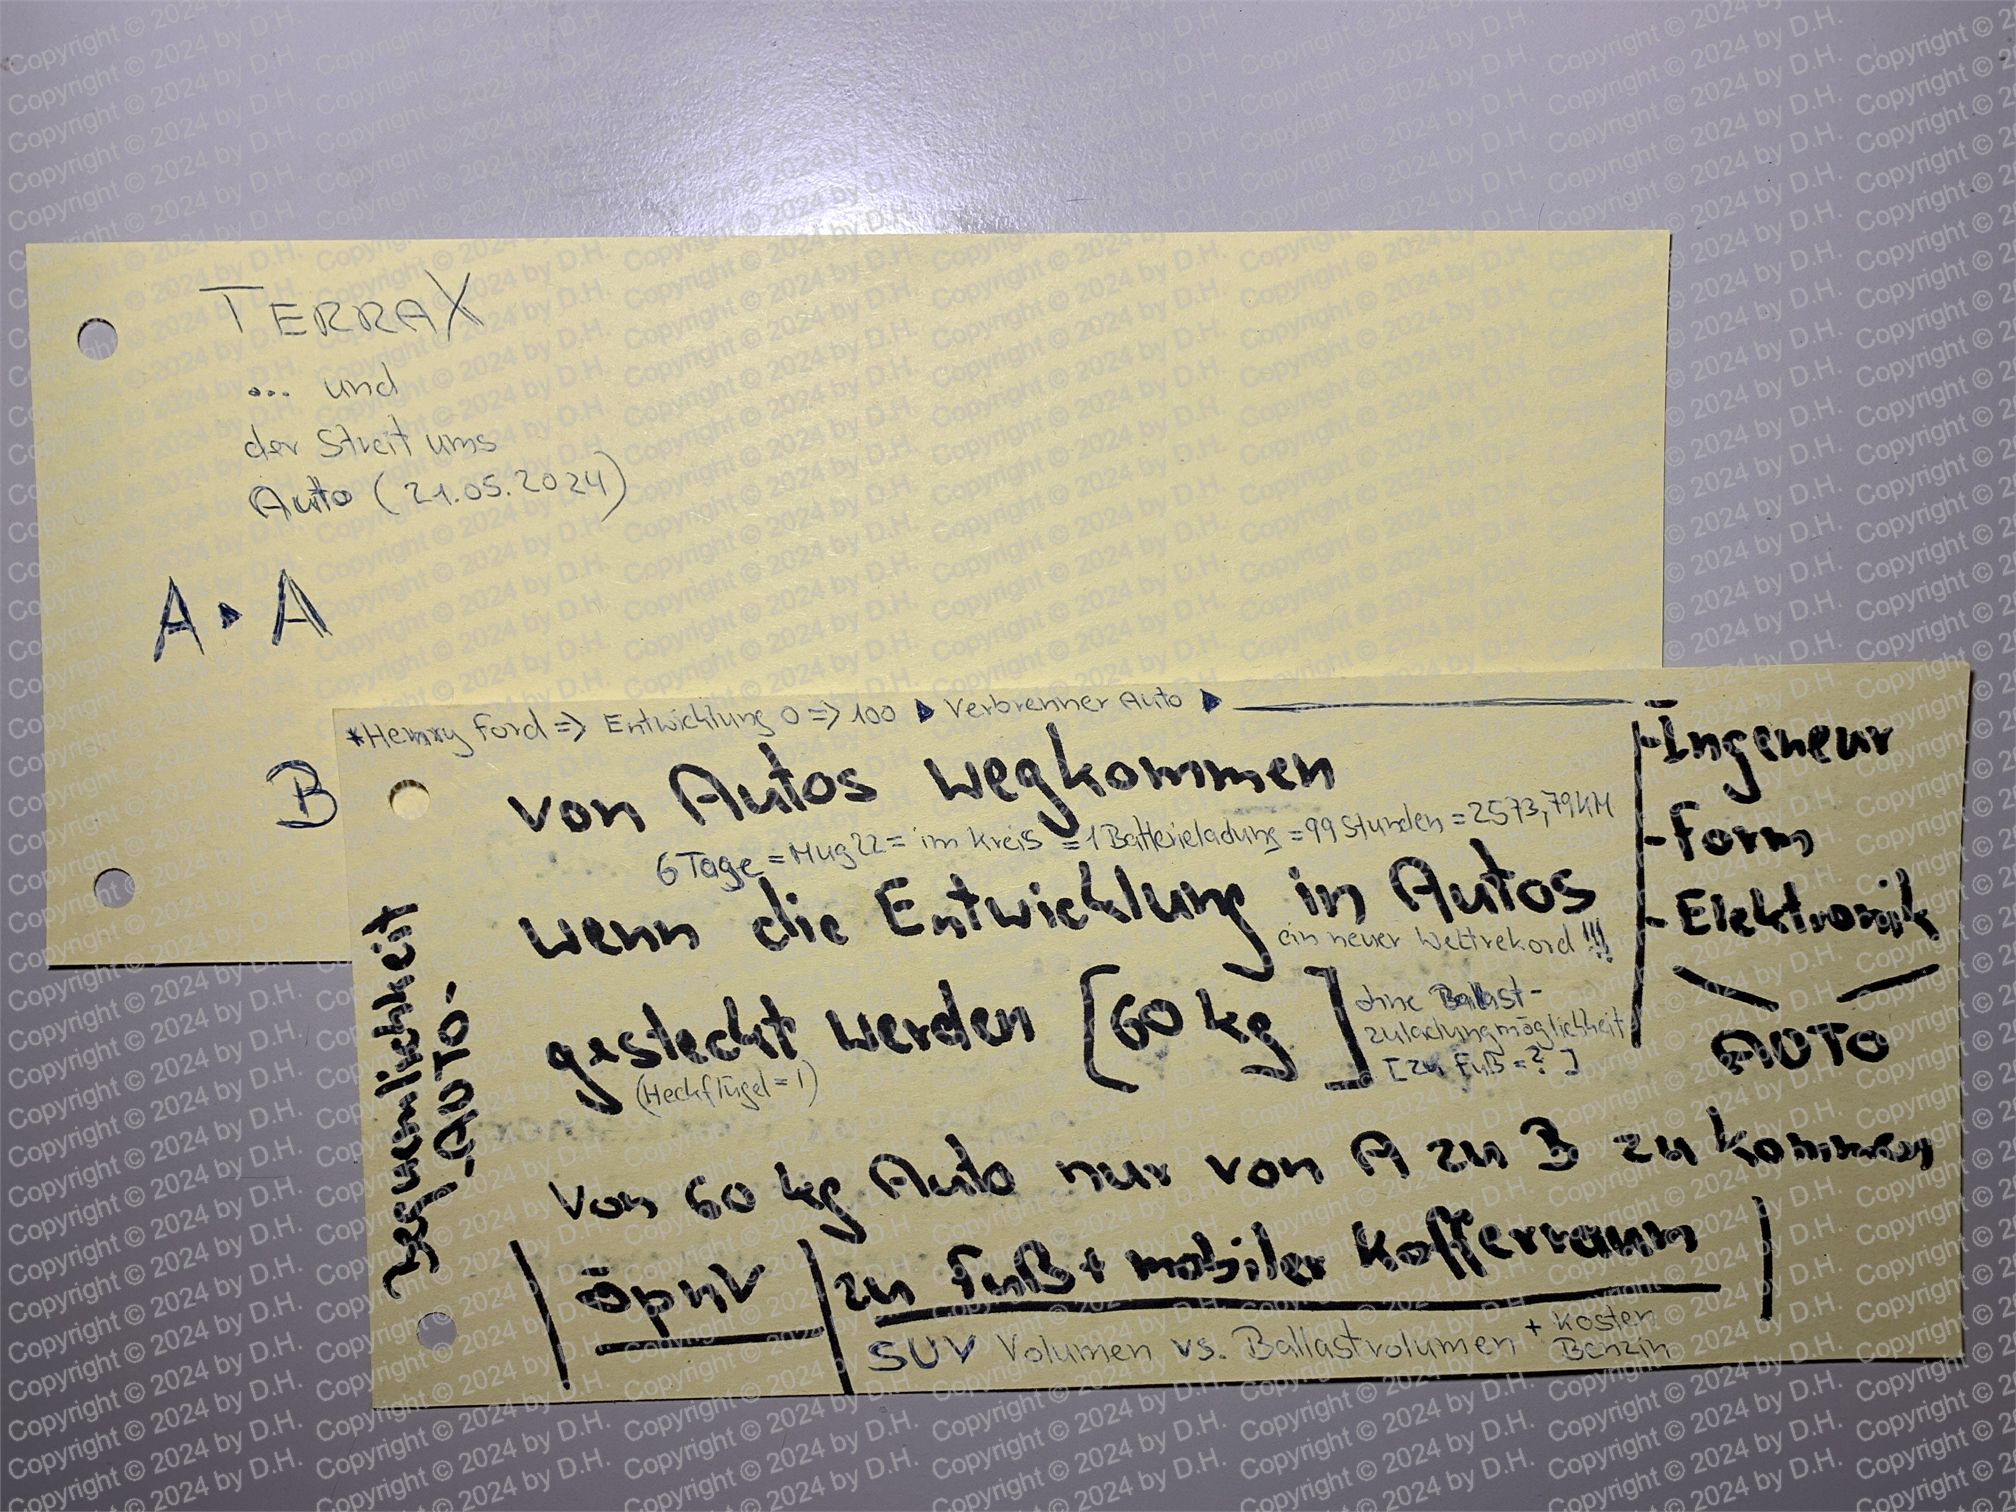 TERRAX
... und
der Streit ums
Auto (21.05.2024)
A ▶ A
B
*Henry Ford => Entwicklung 0 => 100 ▶ Verbrenner Auto ▶
von Autos wegkommen
6 Tage = Mug22 = im Kreis = 1 Batterieladung = 99 Stunden = 2573,79 KM
wenn die Entwicklung in Autos
ein neuer Weltrekord !!!
gesteckt werden [60 kg]
ohne Ballast-
zuladungmöglichkeit
[zu Fuß = ?]
(Heckflügel = 1)
Von 60 kg Auto nur von A zu B zu kommen
ÖpnV
zu Fuß + mobiler Kofferraum
SUV Volumen vs. Ballastvolumen + Kosten
Benzin
- Ingeneur
- Form
- Elektronik
AUTO
Bequemlichkeit
-AUTO-
Copyright © 2024 by D.H.